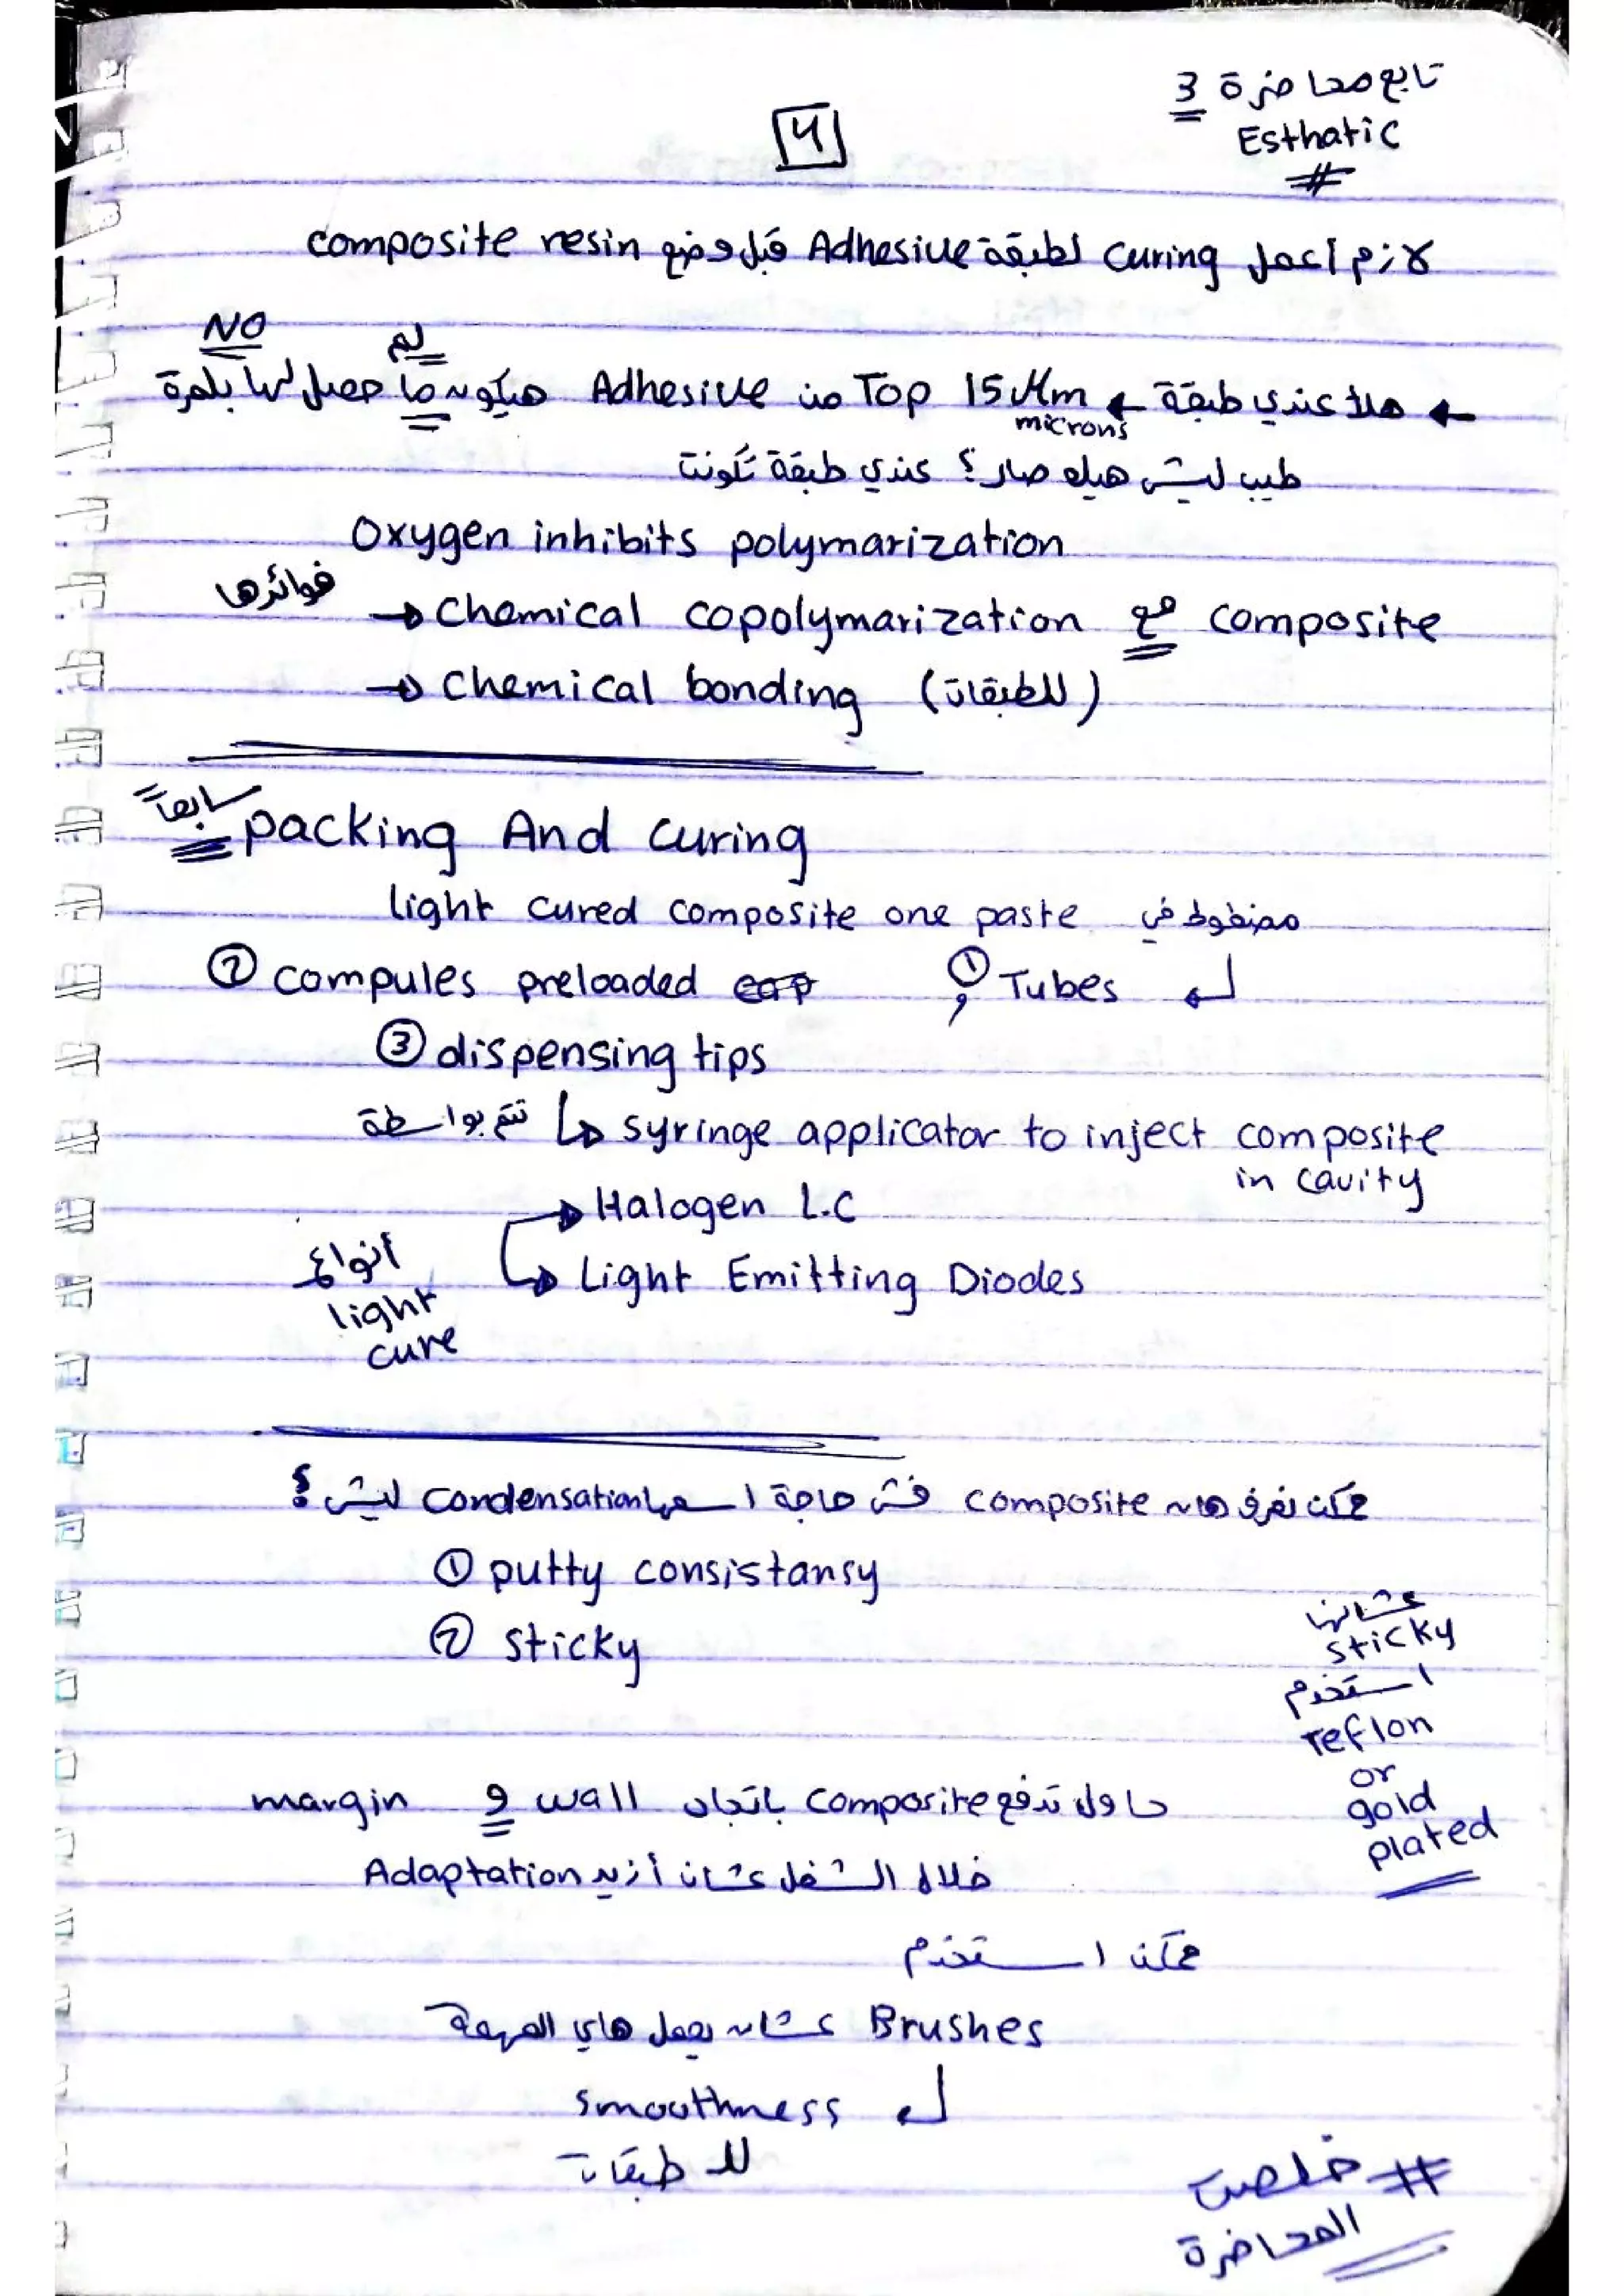 تابع محاضرة 3
Esthatic
4
لازم أعمل curing لطبقة Adhesive قبل وضع composite resin
NO
لم
← هلأ عندي طبقة ← 15 Mm Top من Adhesive هيكون ما حصل لها بلمرة
microns
طيب ليش هيك صار؟ عندي طبقة تكونت
Oxygen inhibits polymarization
فوائدها
→ Chemical copolymarization مع composite
→ Chemical bonding (للطبقات)
سابعاً packing And curing
light cured composite one paste مضغوط في
① Tubes و ② compules preloaded
③ dispensing tips
تتم بواسطة ↳ syringe applicator to inject composite
in cavity
→ Halogen L.C
أنواع
↳ Light Emitting Diodes
light
cure
ممكن نعرف هان composite فش حاجة اسمها condensation ليش؟
① putty consistansy
② sticky
عشانها
sticky
استخدم
Teflon
or
gold
plated
حاول تدفع composite باتجاه wall و margin
خلال الشغل عشان أزيد Adaptation
ممكن استخدم
Brushes عشان يعمل هاي المهمة
smoothness
للطبقات
# خلصت
المحاضرة